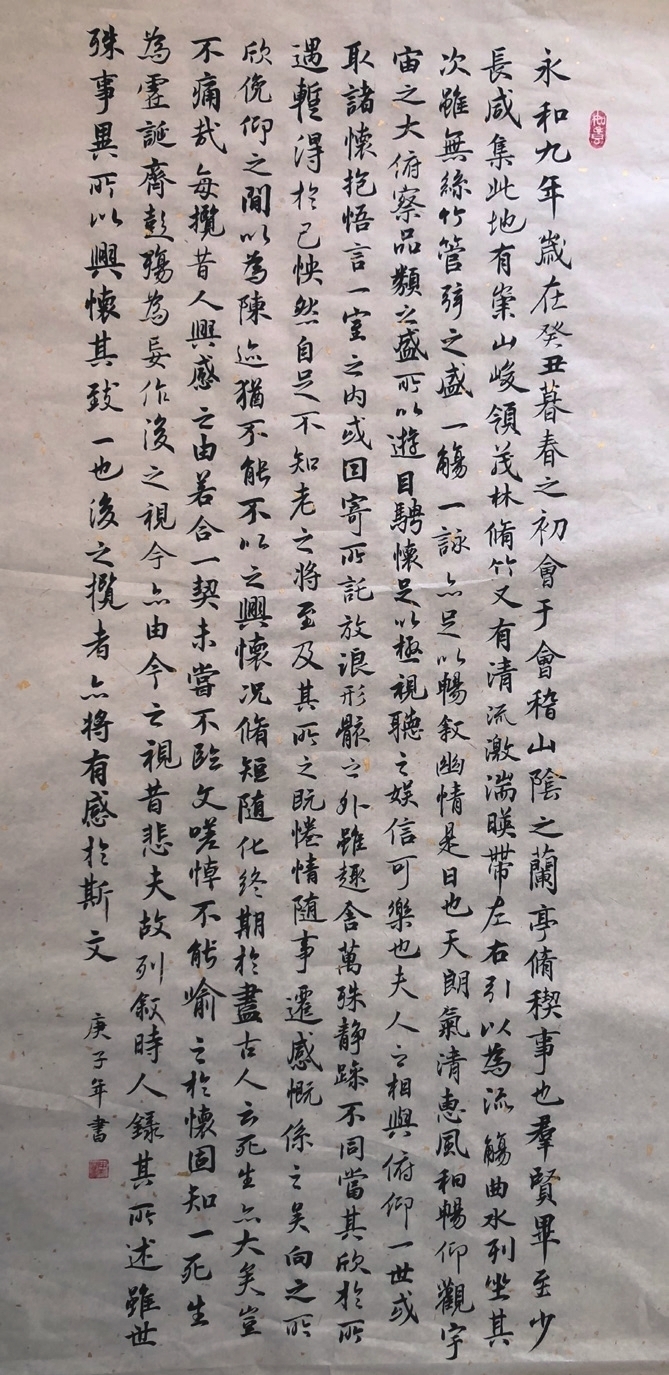 永和九年歲在癸丑暮春之初會于會稽山陰之蘭亭脩稧事也羣賢畢至少
長咸集此地有崇山峻領茂林脩竹又有清流激湍暎帶左右引以為流觴曲水列坐其
次雖無絲竹管弦之盛一觴一詠亦足以暢叙幽情是日也天朗氣清惠風和暢仰觀宇
宙之大俯察品類之盛所以遊目騁懷足以極視聽之娛信可樂也夫人之相與俯仰一世或
取諸懷抱悟言一室之內或因寄所託放浪形骸之外雖趣舍萬殊靜躁不同當其欣於所
遇暫得於己怏然自足不知老之將至及其所之既惓情隨事遷感慨係之矣向之所
欣俛仰之間以為陳迹猶不能不以之興懷况脩短隨化終期於盡古人云死生亦大矣豈
不痛哉每攬昔人興感之由若合一契未嘗不臨文嗟悼不能喻之於懷固知一死生
為虛誕齊彭殤為妄作後之視今亦由今之視昔悲夫故列叙時人錄其所述雖世
殊事異所以興懷其致一也後之攬者亦將有感於斯文
庚子年書